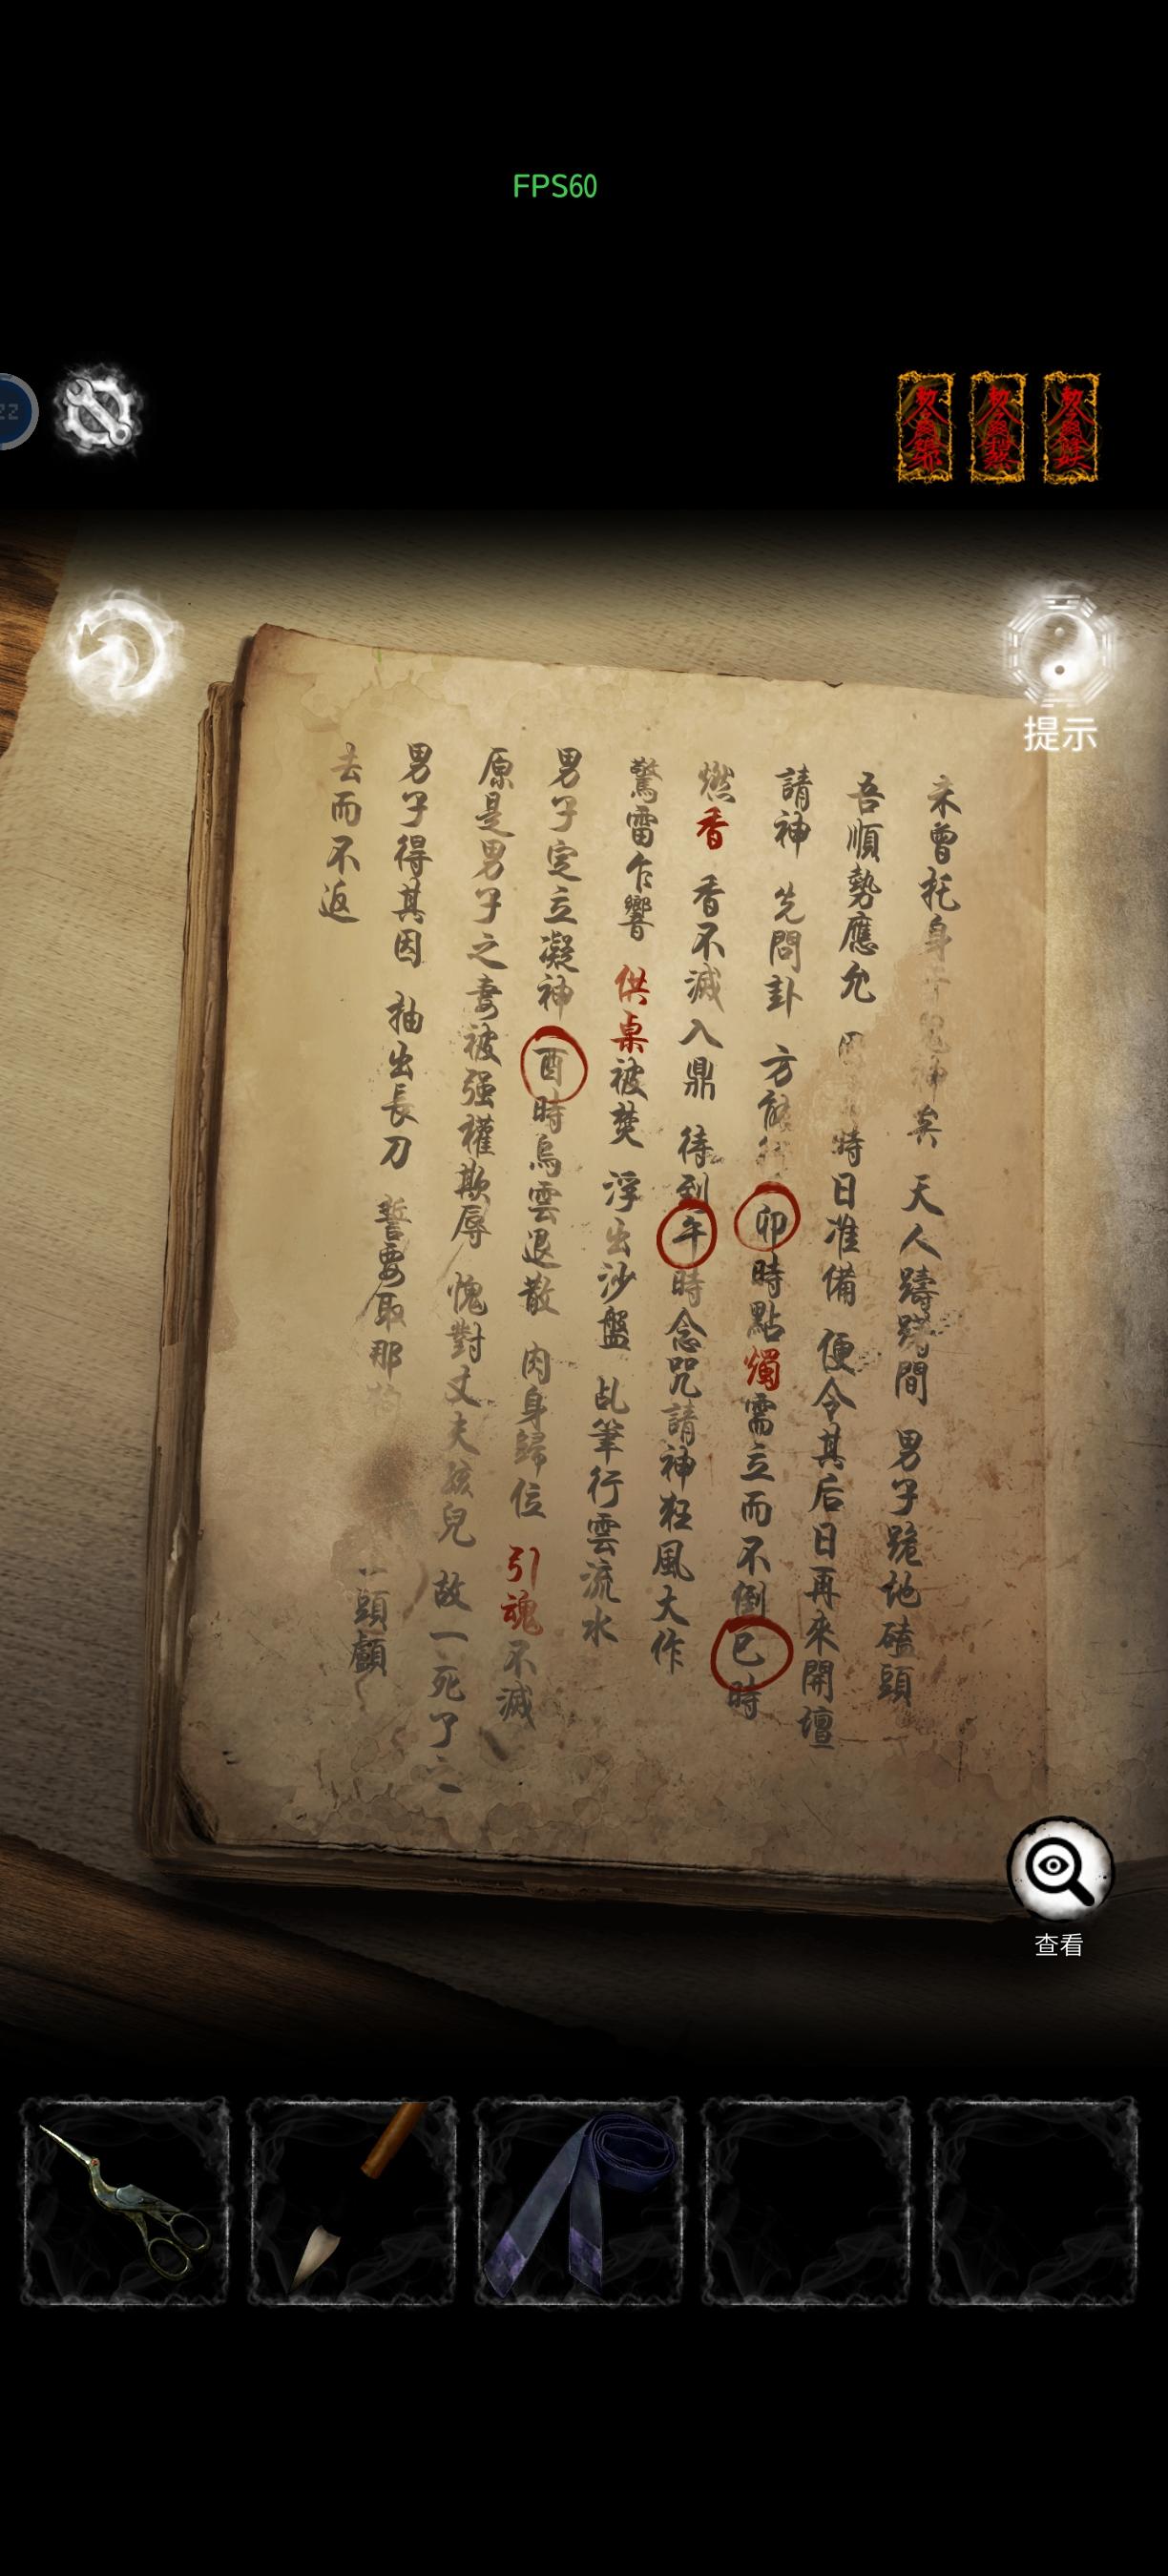 FPS60
22
提示
未曾托身
矣 天人躊躇間 男子跪地磕頭
吾順勢應允
時日准備 便令其后日再來開壇
請神 先問卦 方能
卯時點燭需立而不倒巳時
燃香 香不滅入鼎 待到午時念咒請神狂風大作
驚雷乍響 供桌被焚 浮出沙盤 乩筆行雲流水
男子定立凝神 酉時烏雲退散 肉身歸位 引魂不滅
原是男子之妻被强權欺辱 愧對丈夫孩兒 故一死了之
男子得其因 抽出長刀 誓要取那
頭顱
去而不返
查看